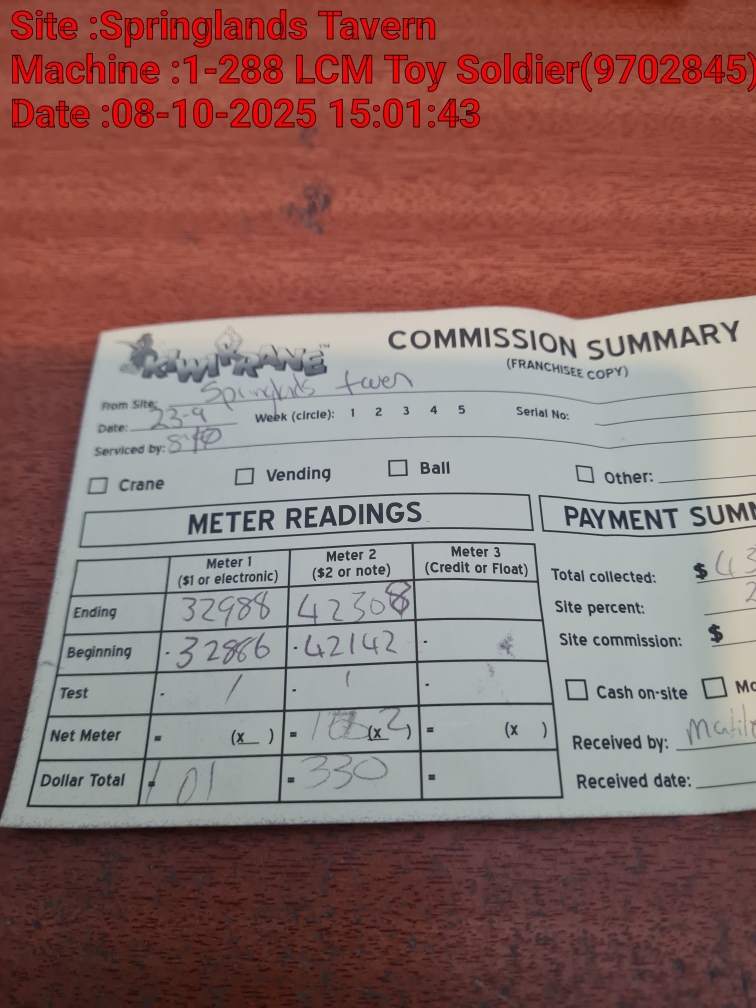 Site :Springlands Tavern
Machine :1-288 LCM Toy Soldier(9702845)
Date :08-10-2025 15:01:43
KIWI KRANE™ COMMISSION SUMMARY
(FRANCHISEE COPY)
From Site:
Date: 23-9 Week (circle): 1 2 3 4 5 Serial No:
Serviced by:
Crane Vending Ball Other:
METER READINGS PAYMENT SUMM
Meter 1 ($1 or electronic) Meter 2 ($2 or note) Meter 3 (Credit or Float)
Total collected: $ 43
Ending 32988 42308
Site percent: 2
Beginning - 32886 - 42142 -
Site commission: $
Test - / - 1 -
Cash on-site Mo
Net Meter = (x ) = (x 2) = (x )
Received by:
Dollar Total = 101 = 330 =
Received date: